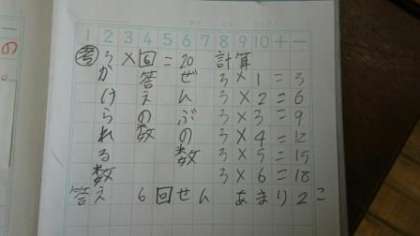 1 2 3 4 5 6 7 8 9 10 + −
考 3×回=20 計算
かけられる数
答えの数
ぜんぶの数
3×1=3
3×2=6
3×3=9
3×4=12
3×5=15
3×6=18
答え 6回せん あまり2こ